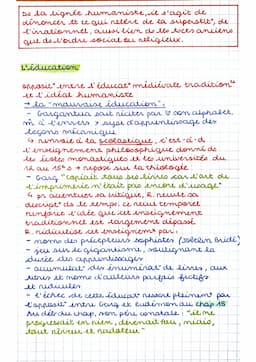 De la lignée humaniste, il s'agit de
dénoncer tt ce qui relève de la superstit°, de
l'irrationnel, aussi bien de les
que de l'ordre social ou religieux.
L'éducation
opposit° entre l'éducat° médiévale tradition
et l'idéal humaniste
→ la "mauvaise éducation".
- Gargantua sait réciter par ♡ son alphabet,
m à l'envers > type d'apprentissage des
leçons mécanique
↳ renvoie à la scolastique, c'est-à-d
l'enseignement philosophique donné ds
les écoles monastiques et les universités du
au 15e s → repose sur la théologie
- Garg "copiait tous ses livres car l'art de
l'imprimerie n'était pas encore d'usage"
↳ pr accentuer sa critique, R. recule sa
descript° ds le temps. ce recul temporel
renforce l'idée que cet enseignement
traditionnel est largement dépassé
R. ridiculise cet enseignement par:
- noms des précepteurs sophistes
- jeu sur le gigantisme, soulignant la
durée des apprentissages
- accumulat° des de livres, aux
titres et noms d'auteurs parfois fictifs
et ridicules
- l'échec de cette éducat° ressort pleinement par
l'opposit° entre Garg et Eudémon au chap 15
du chap, son père constate: "il ne
progressait en rien, devenait fou, niais,
tout rêveur et radoteur"